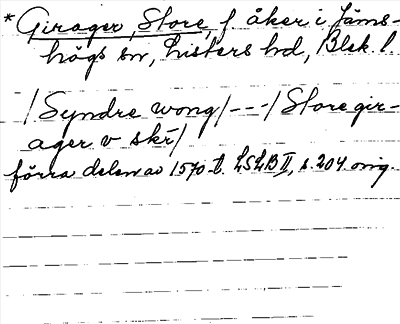 * Girager, Store, f åker i Jäms-
högs sn, Listers hd, Blek. l.
/Syndre wong/---/Store gir-
ager v skr/
förra delen av 1570-t. LSLB II, s. 204 orig.